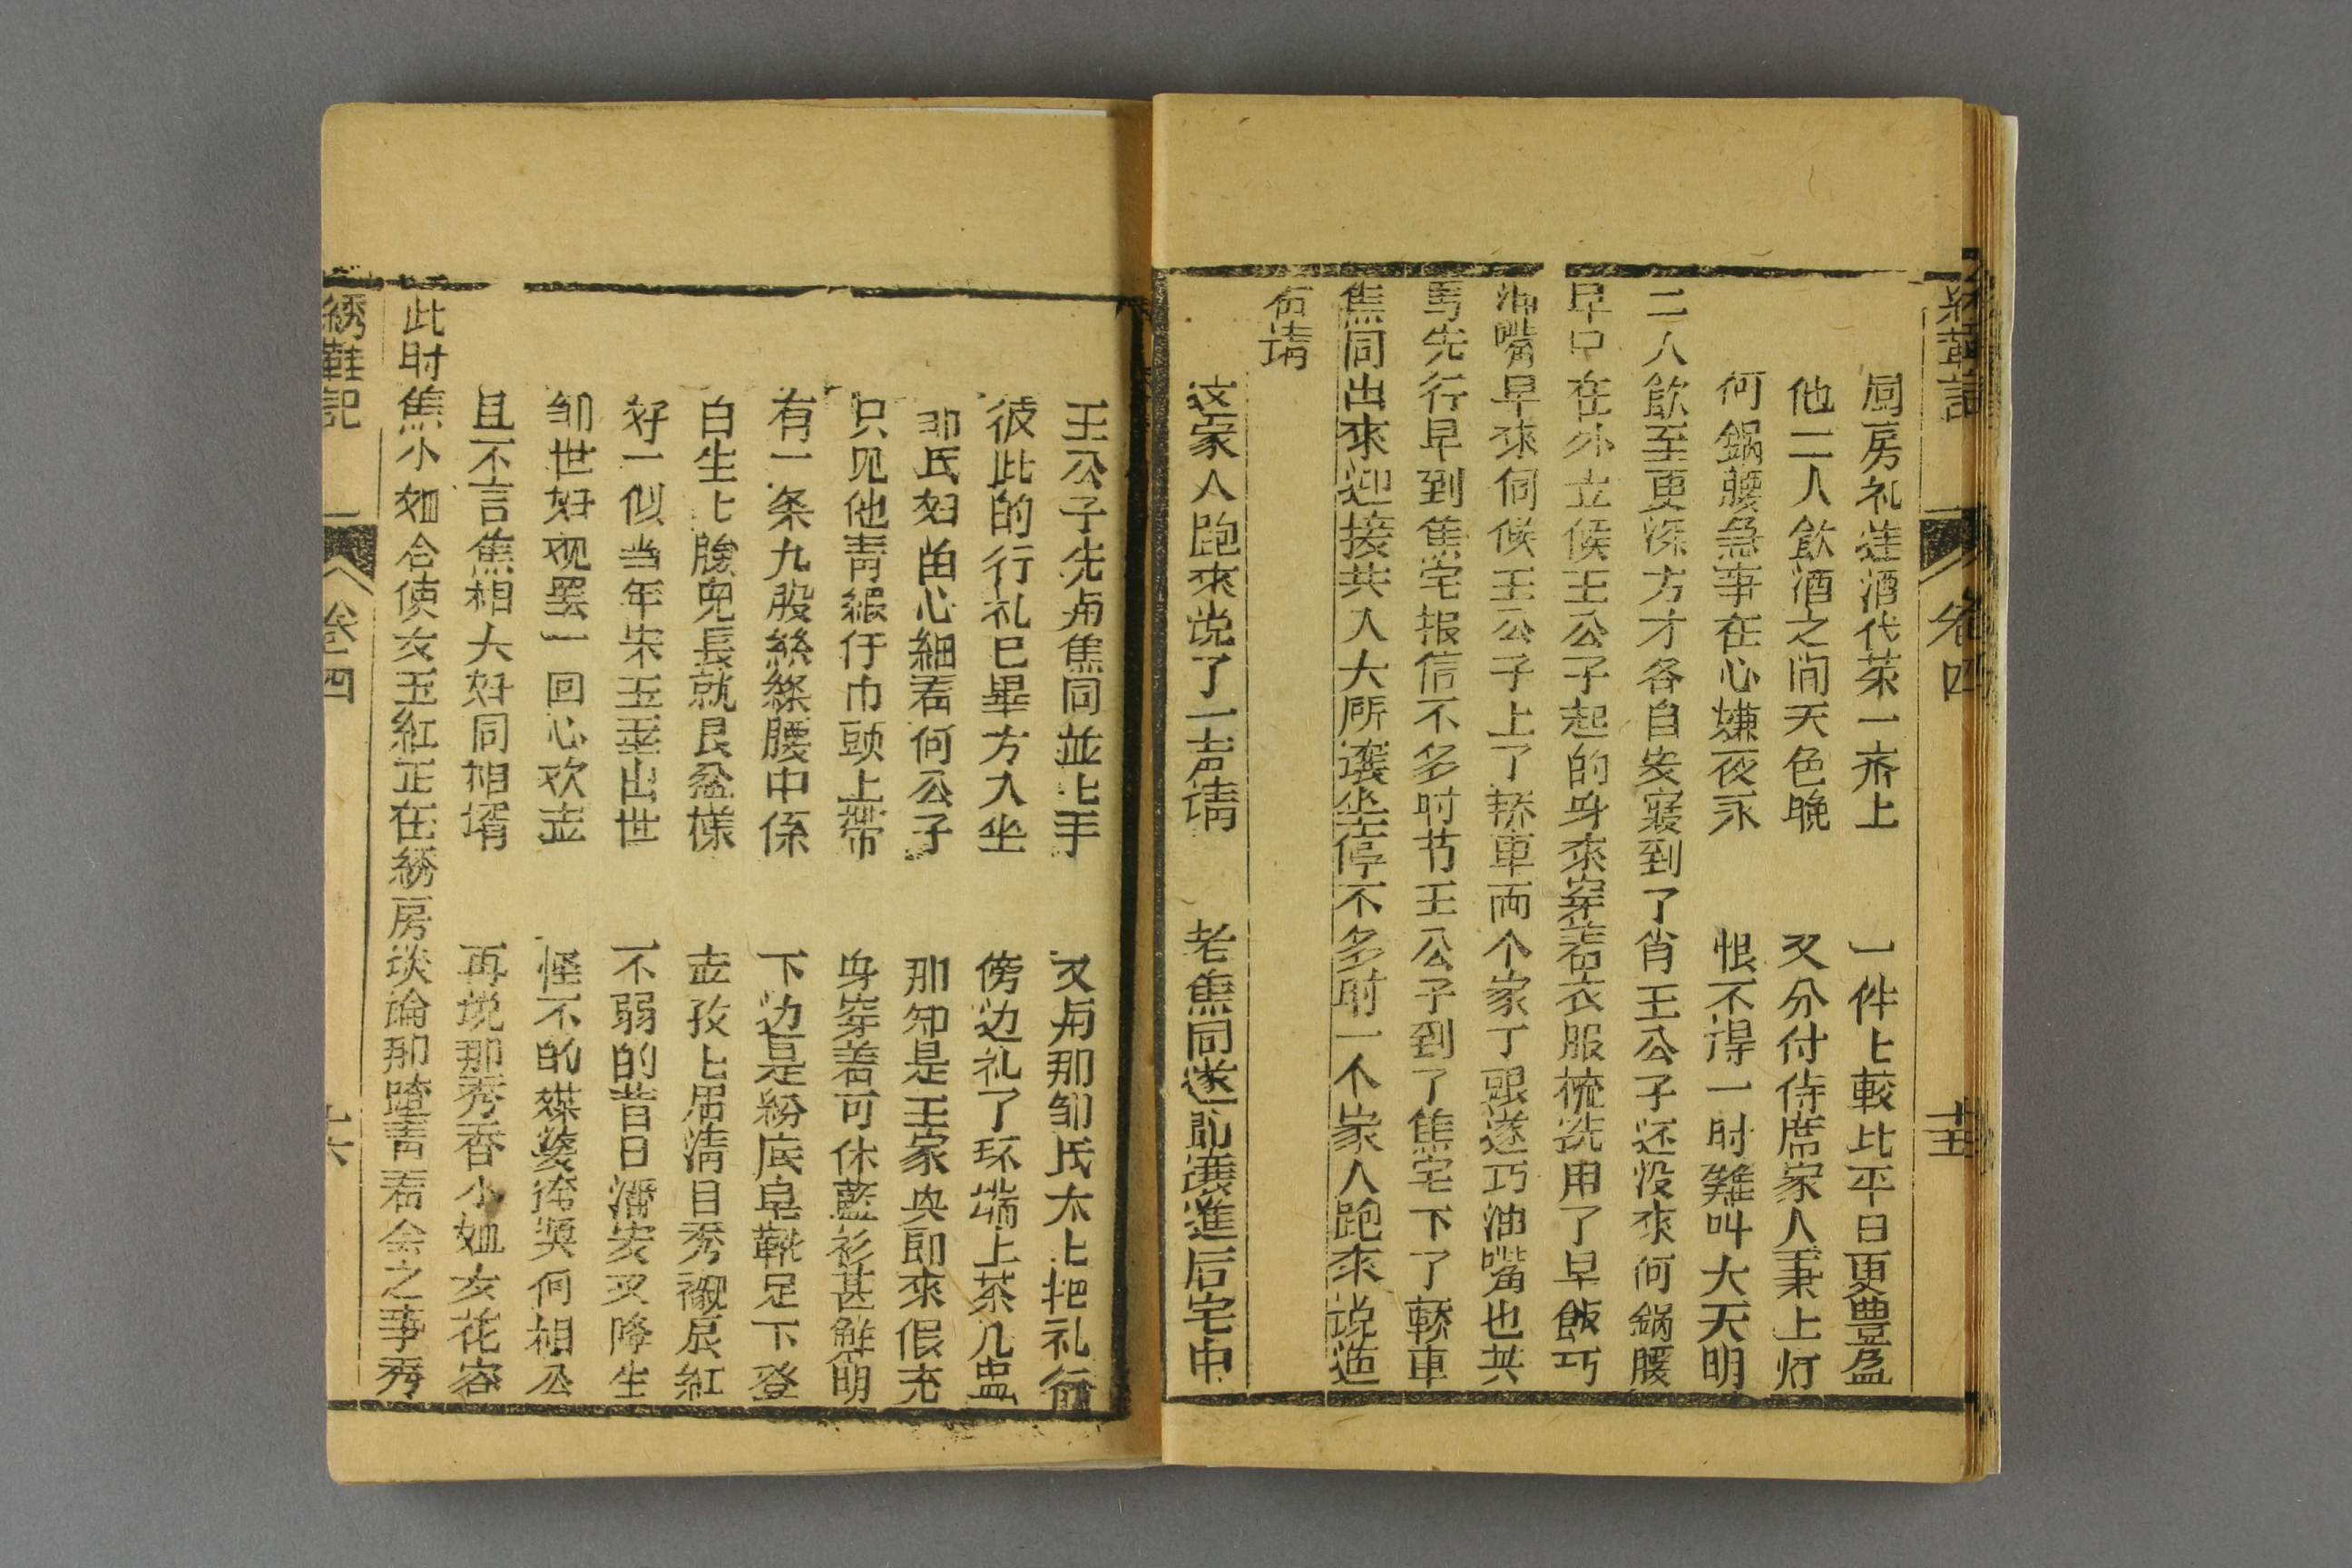 綉鞋記 卷四 十五
房礼進酒代菜一齐上 一件匕較比平日更豊盈
他二人飲酒之间天色晚 又分付侍席家人秉上灯
何鍋腰急事在心嫌夜永 恨不得一时難叫大天明
二人飲至更深方才各自安寢到了肖王公子还没來何鍋腰
早早在外立候王公子起的身來穿着衣服梳洗用了早飯巧
油嘴早來伺候王公子上了轎車両个家丁跟遂巧油嘴也共
馬先行早到焦宅报信不多时节王公子到了焦宅下了轎車
焦同出來迎接共入大所讓坐停不多时一个家人跑來说道
有请
这家人跑來说了一声请 老焦同遂即讓進后宅中
王公子先与焦同並匕手 又与那邹氏太匕把礼行
彼此的行礼已畢方入坐 傍边礼了环端上茶几盅
邹氏好留心細看何公子 那知是王家央即來假充
只见他青緞仔巾頭上帶 身穿着可休藍衫甚鮮明
有一条九股絲縧腰中係 下边是粉底皂靴足下登
白生匕臉皃長就艮盆樣 孜匕眉清目秀襯唇紅
好一似当年宋玉重出世 不弱的昔日潘安又降生
邹世好观罢一回心欢 怪不的媒婆誇奖何相公
且不言焦相大好同相壻 再说那秀香小姐女花容
此时焦小姐合使女玉紅正在綉房谈論那踏青看会之事秀
綉鞋記 卷四 十六